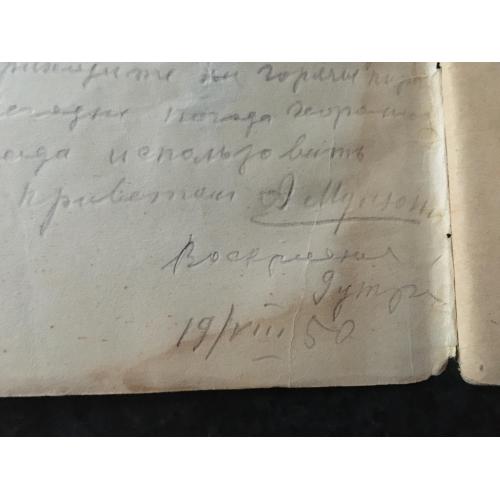 приходите на горячий
сегодня погода хорошая
надо использовать
приветом А Мунц
Воскресенье
9 утра
19/VIII 50